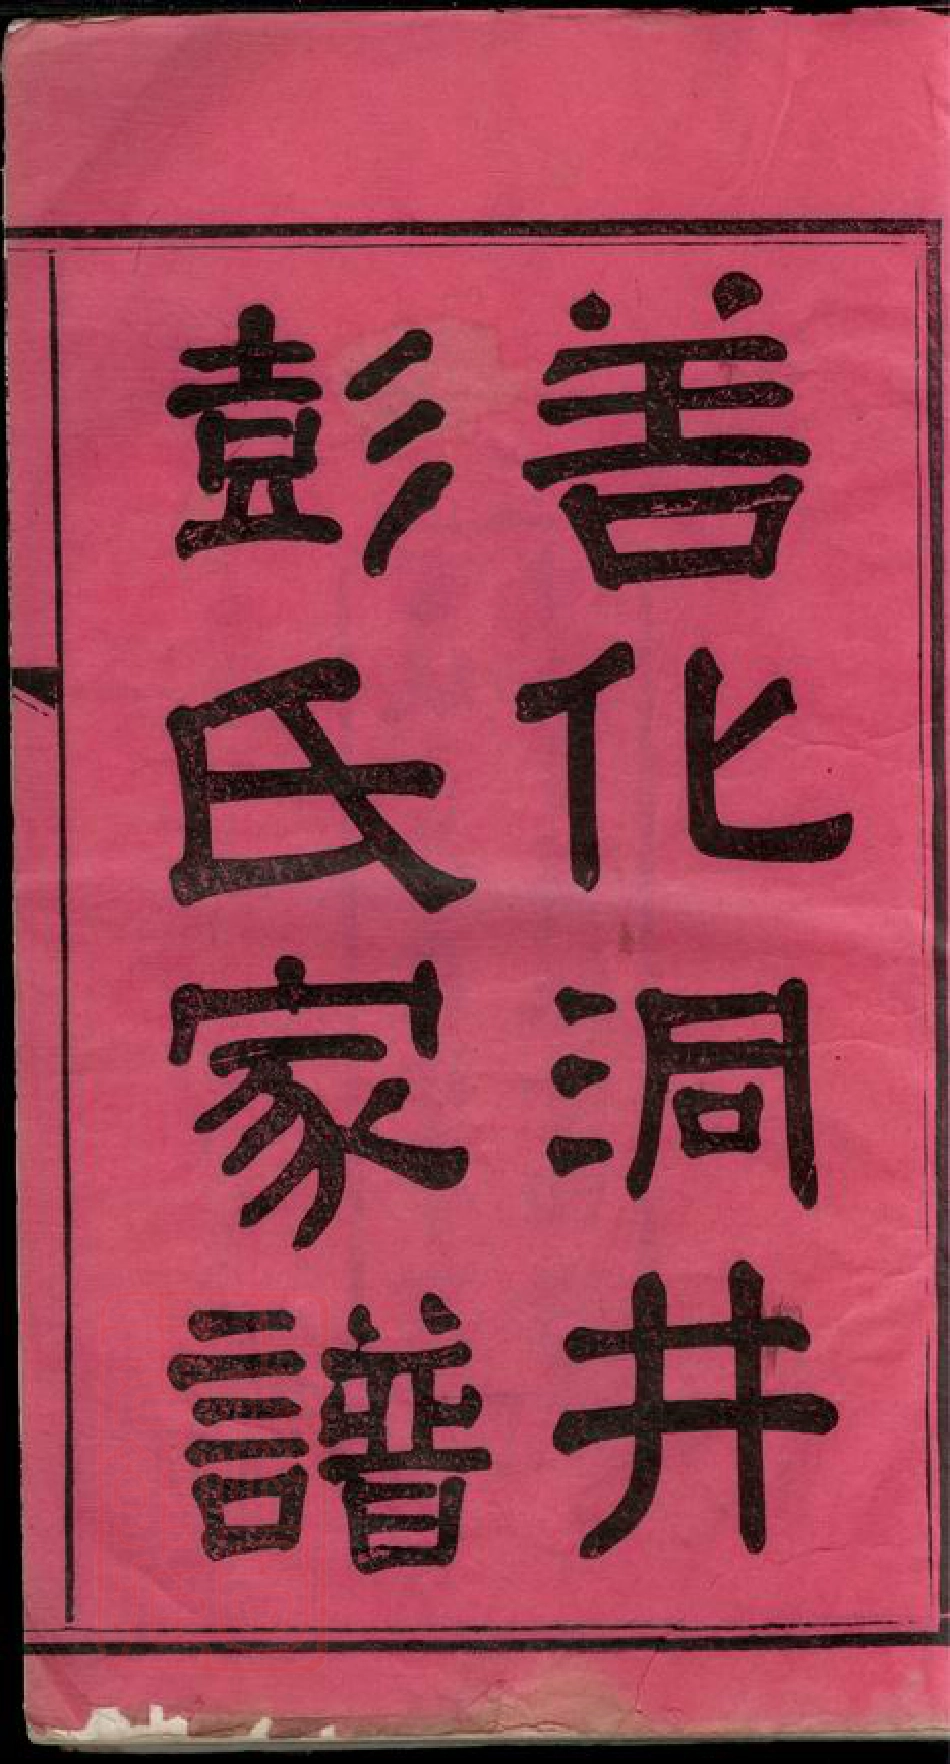 善化洞井
彭氏家譜